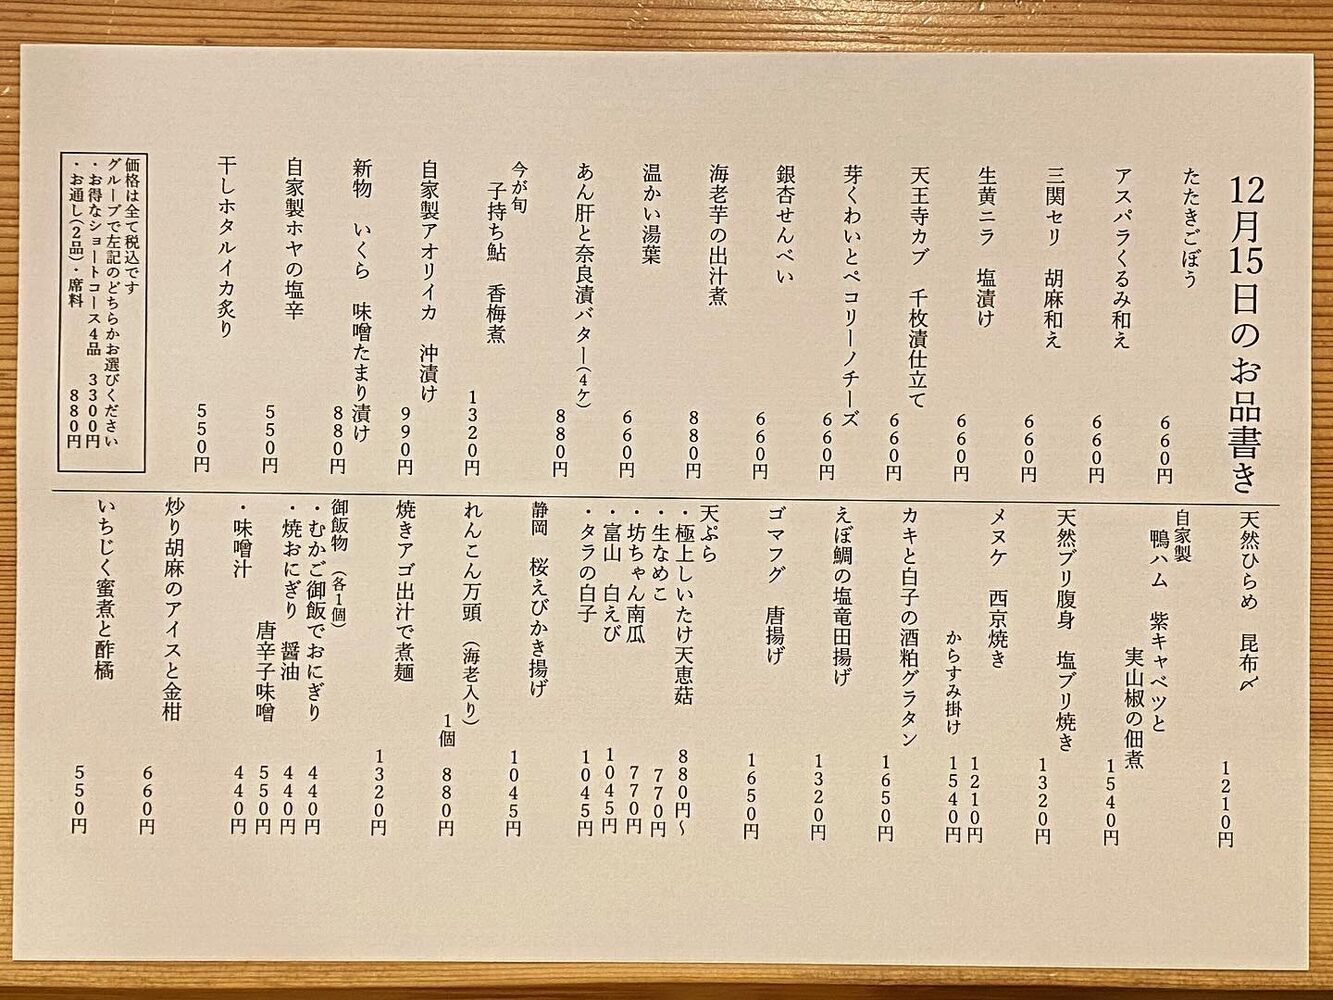 12月15日のお品書き
たたきごぼう
660円
アスパラくるみ和え
660円
三関セリ 胡麻和え
660円
生黄ニラ 塩漬け
660円
天王寺カブ 千枚漬仕立て
660円
芽くわいとペコリーノチーズ
660円
銀杏せんべい
660円
海老芋の出汁煮
880円
温かい湯葉
660円
あん肝と奈良漬バター(4ケ)
880円
今が旬
子持ち鮎 香梅煮
1320円
自家製アオリイカ 沖漬け
990円
新物 いくら 味噌たまり漬け
880円
自家製ホヤの塩辛
550円
干しホタルイカ炙り
550円
価格は全て税込です
グループで左記のどちらかお選びください
・お得なショートコース4品 3300円
・お通し(2品)・席料 880円
天然ひらめ 昆布〆
1210円
自家製
鴨ハム 紫キャベツと
実山椒の佃煮
1540円
天然ブリ腹身 塩ブリ焼き
1320円
メヌケ 西京焼き
1210円
からすみ掛け
1540円
カキと白子の酒粕グラタン
1650円
えぼ鯛の塩竜田揚げ
1320円
ゴマフグ 唐揚げ
1650円
天ぷら
・極上しいたけ天恵菇 880円〜
・生なめこ 770円
・坊ちゃん南瓜 770円
・富山 白えび 1045円
・タラの白子 1045円
静岡 桜えびかき揚げ
1045円
れんこん万頭 (海老入り)
1個
880円
焼きアゴ出汁で煮麺
1320円
御飯物 (各1個)
・むかご御飯でおにぎり 440円
・焼おにぎり 醤油 440円
唐辛子味噌 550円
・味噌汁 440円
炒り胡麻のアイスと金柑
660円
いちじく蜜煮と酢橘
550円